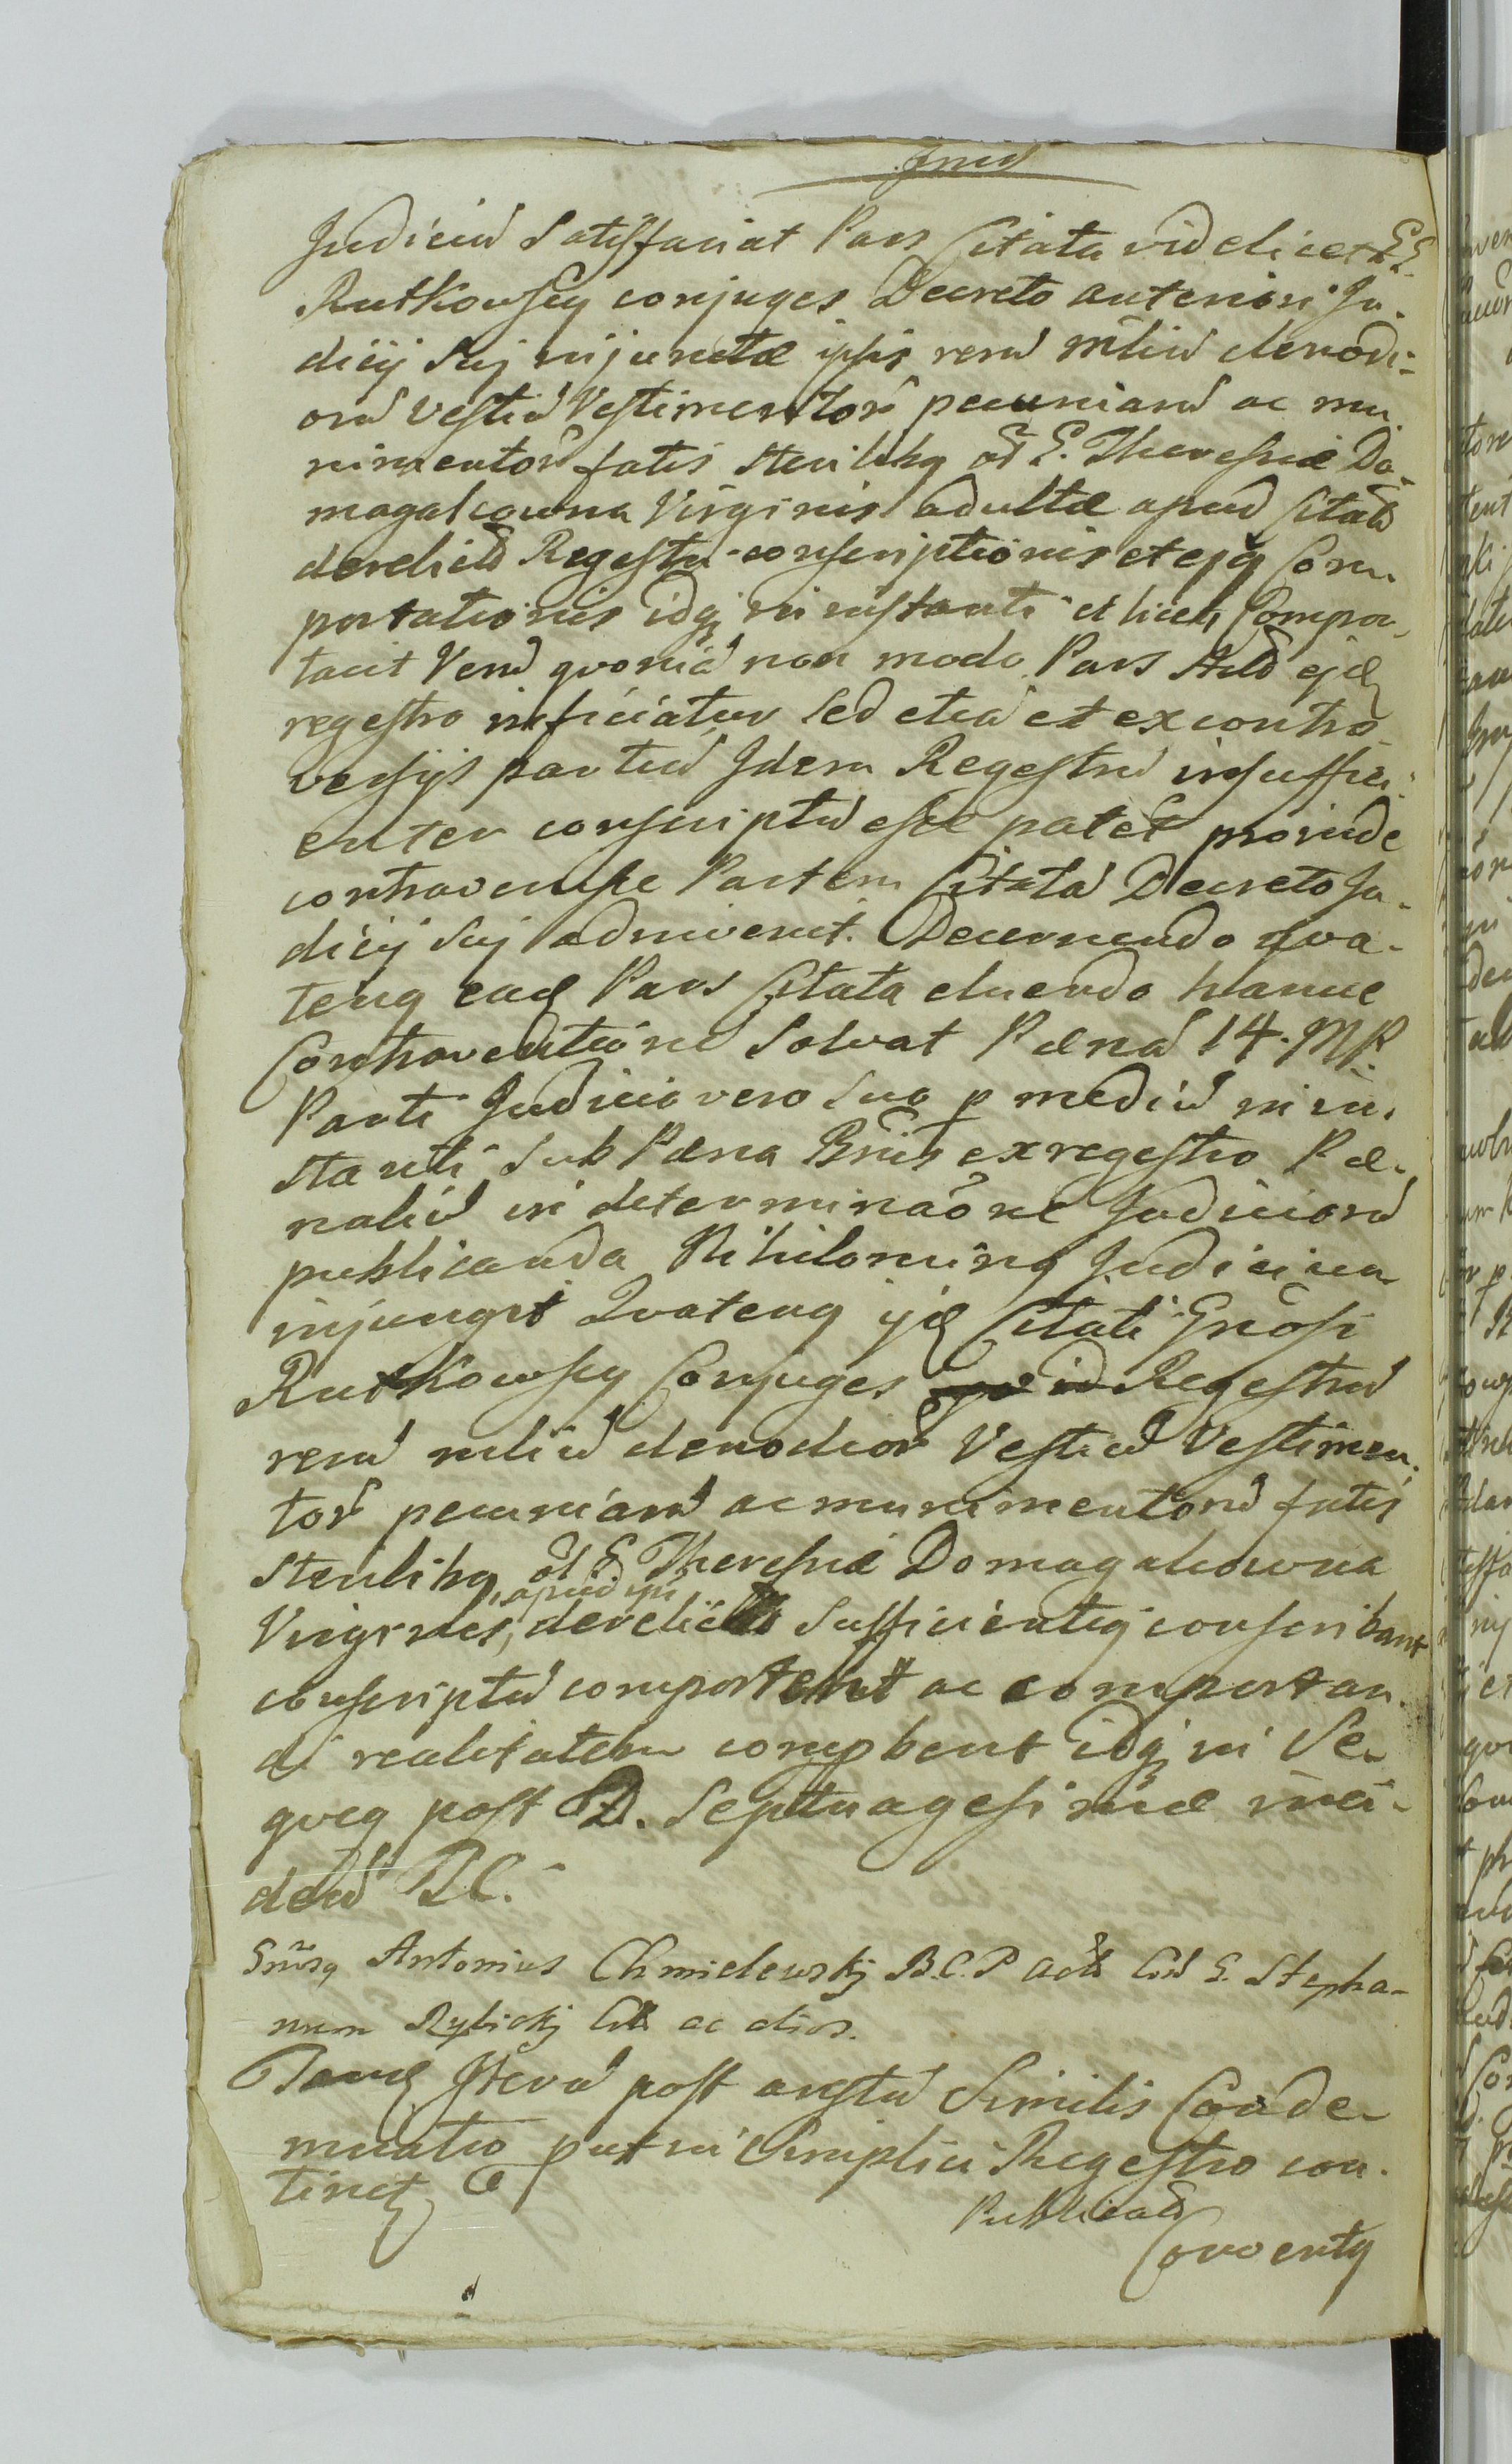 Judiciū Satisfaciat Pars Citata videlicet GG.
Rutkowscy conjuges Decreto anteriori Ju-
dicij Sui injunctæ ipsis rerū mliū clenodi-
orū vestiū Vestimentorū pecuniarū ac mu-
nimentorū fatis sterilibq olī G. Theresiæ Do-
magalcowna Virginis adultæ apud Citatū
derelictū Regestri conscriptionis et ejq Com-
portationis idq in instanti et licet Compor-
tavit Verū qvoniā non modo Pars Actū ejd
regestro inficiatur Sed etiā et ex contro-
versijs partiū Idem Regestrū insuffici-
enter conscriptū esse patet proinde
contravenisse Partem Citatā Decreto Ju-
dicij Sui adinvenit. Decernendo qva-
tenq ead Pars Citata eluendo hance
Contraventionē Solvat Pænā 14. MP.
Parti Judicio vero Suo p mediū in in-
stanti Sub Pæna Bnis ex regestro Pæ-
naliū in determinaōne Judiciorū
publicanda Nihilominq Judicium
injungit Qvatenq ijd Citati Gnōsi
Rutkowscy Conjuges Regestrū
rerū mliū clenodiorū Vestiū Vestimen-
torū pecuniarū ac munimentorū fatis
sterilibq olī G. Theresiæ Domagalcowna
Virginis, apud ipsos, derelictū Sufficientiq conscribant
conscriptū comportent ac comportan-
di realitatem compbent idq in Se-
qveq post D. Septuagesimæ inci-
den̄ D.C.
Gnōsq Antonius Chmielewskj B.C.P Actō Con G. Stepha-
num Rylickj Citt ac alios.
Tand Iterū post arestū Similis Conde-
mnatio put in Simplici Regestro con-
tinet
Publicad
Conventq